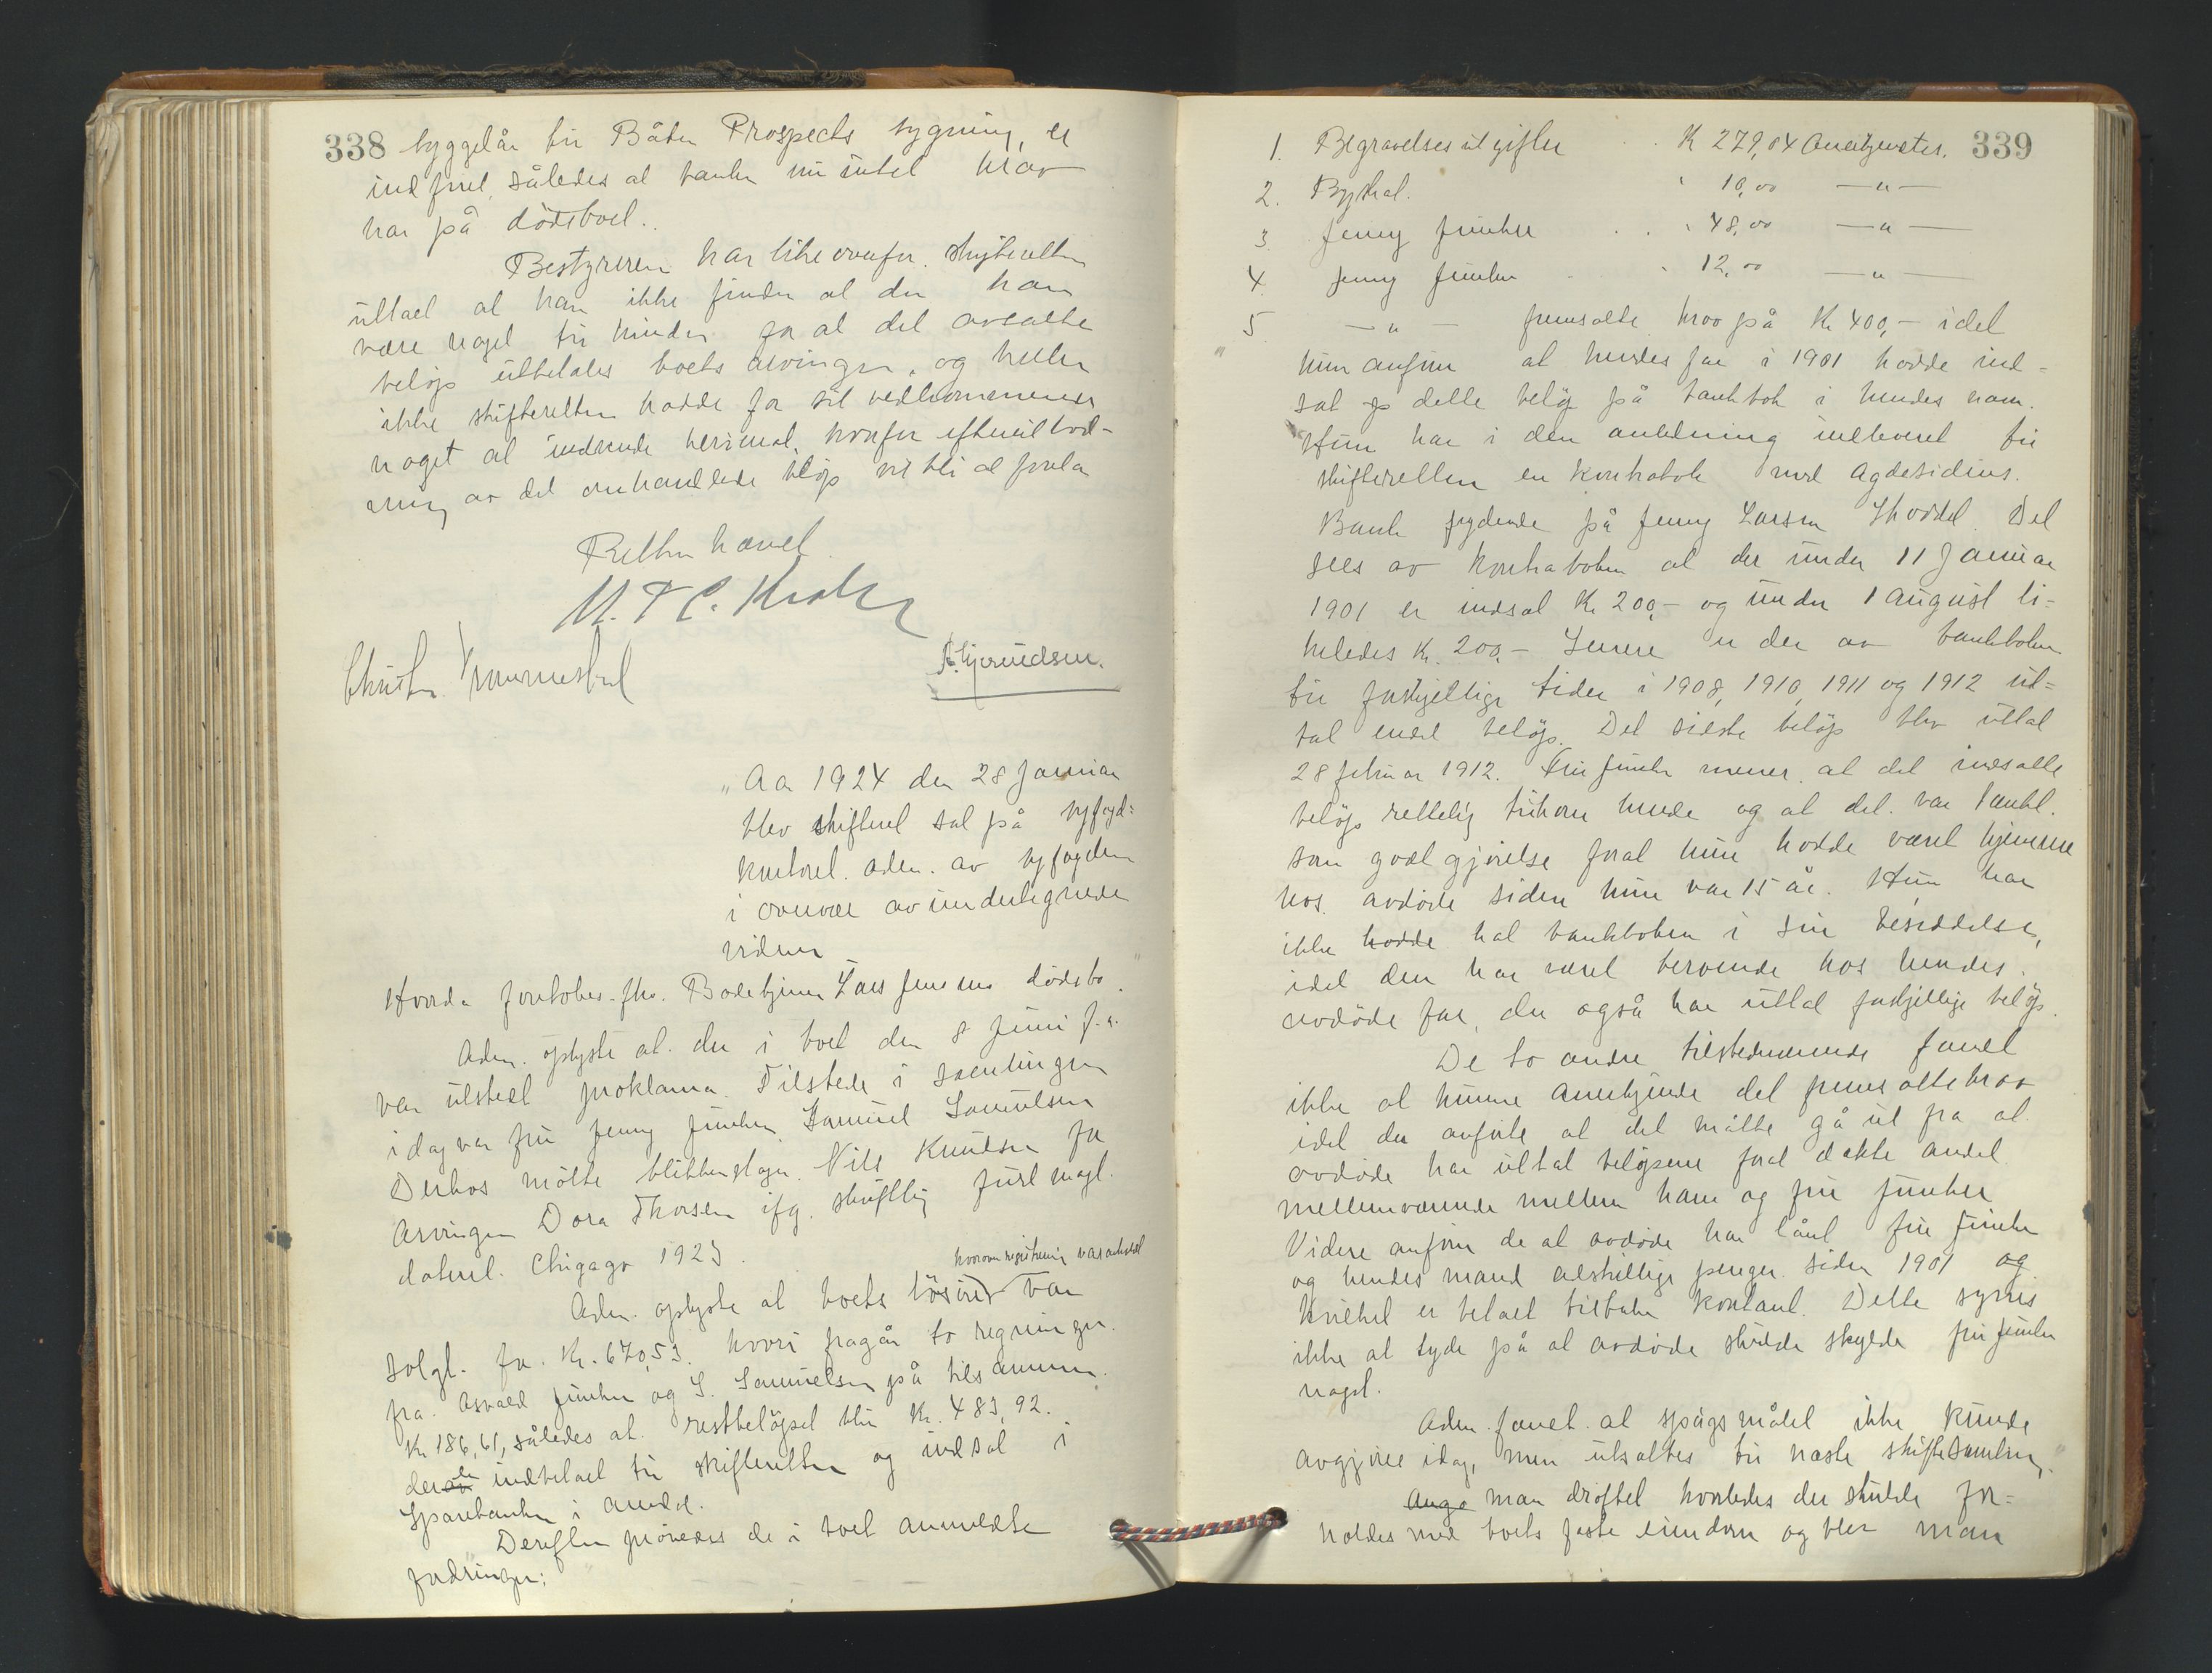 338 byggelån til Båten Prospects bygning, er
indfriet, således at banken nu intet krav
har på dödsboet.
Bestyreren har likeovenfor skifteretten
uttalt at han ikke finder at der kan
være noget til hinder for at det avsatte
belöp utbetales boets arvinger, og heller
ikke skifteretten hadde for sit vedkommende
noget at indvende herimot, hvorfor efterutlod-
ning av det omhandlede belöp vil bli at foreta
Retten hævet
Christen
"Aar 1924 den 28 Januar
blev skifteret sat på byfogd=
kontoret. adm. av byfogden
i overvær av undertegnede
vidner
Hvorda foretokes. fhv. Badebetjener Lars Jensens dödsbo.
Adm. oplyste at der i boet den 8 Juni f. a.
var utstedt proklama. Tilstede i samlingen
idag var fru Jenny Juncker, Samuel Samuelsen
Derhos mötte blikkenslager Nils Knudsen for
Arvingen Dora Thorsen ifg. skriftlig fuldmagt.
dateret. Chigago 1923.
hvorover registrering var avholdt
Adm. oplyste at boets lösöre var
solgt. for. Kr. 670,53. hvori fragår to regninger.
fra. Osvald Juncker og S. Samuelsen på tilsammen.
Kr 186,61, således at restbelöpet blir Kr. 483,92.
indbetalt til skifteretten og indsat i
Sparebanken i Arendal.
Derefter prövedes de i boet anmeldte
fordringer:
1. Begravelsesutgifter . . K 279,04 Anerkjendtes. 339
2. Byskat. " 10,00 —"—
3. Jenny Juncker . . " 48,00 —"—
4. Jenny Juncker . " 12,00 —"—
5 —"— fremsatte krav på Kr 400,- idet
hun anförer at hendes far i 1901 hadde ind=
sat op dette belöp på bankbok i hendes navn.
Hun har i den anledning indleveret til
skifteretten en kontrabok med Agdesidens.
Bank lydende på Jenny Larsen Det
sees av kontraboken at der under 11 Januar
1901 er indsat Kr 200,- og under 1 August li=
keledes Kr. 200,- Senere er der av bankboken
til forskjellige tider i 1908, 1910, 1911 og 1912 ut=
tat endel belöp. Det sidste belöp blev uttat
28 februar 1912. Fru Juncker mener at det indsatte
belöp rettelig tilkom hende og at det var tænkt
som godtgjörelse forat hun hadde været hjemme
hos avdöde siden hun var 15 år. Hun har
ikke hadde hat bankboken i sin besiddelse,
idet den har været beroende hos hendes
avdöde far, der også har uttat forskjellige belöp.
De to andre tilstedeværende fandt
ikke at kunne anerkjende det fremsatte krav
idet de anförte at det måtte gå ut fra at
avdöde har uttat belöpene forat dække andet
mellemværende mellem ham og fru Juncker
Videre anförer de at avdöde har lånt fru Juncker
og hendes mand adskillige penger siden 1901 og
hvilket er betalt tilbake kontant. Dette synes
ikke at tyde på at avdöde skulde skylde fru Juncker
noget.
Adm. fandt at spörgsmålet ikke kunde
avgjöres idag, men utsattes til næste skiftesamling.
Ang man dröftet hvorledes der skulde for=
holdes med boets faste eiendom og blev man